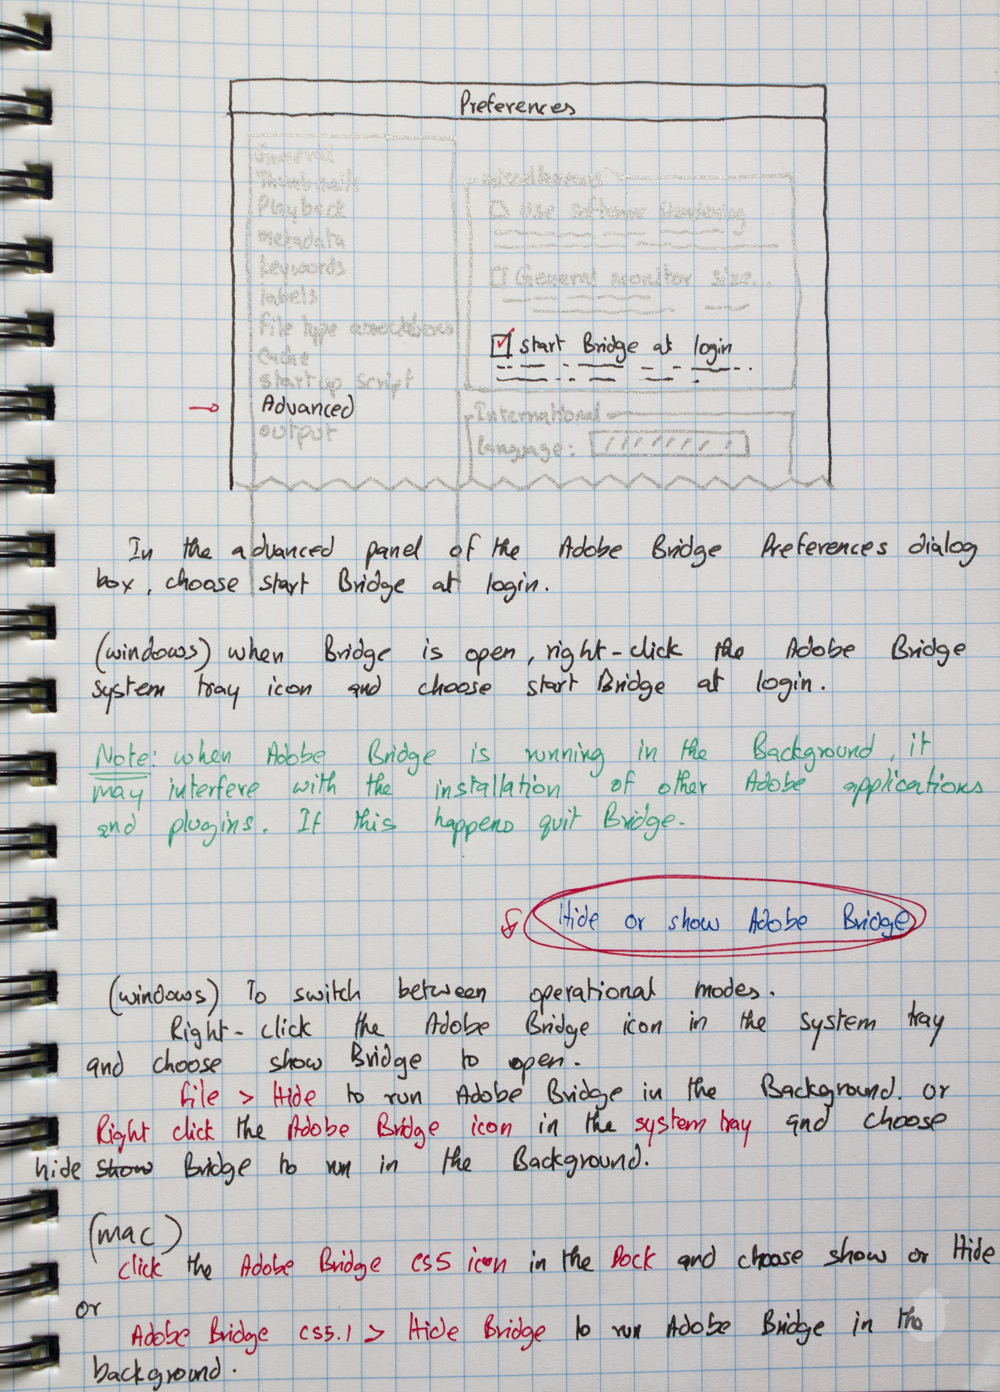 Preferences
General
Thumbnails
Playback
metadata
keywords
labels
File type associations
Cache
startup script
Advanced
output
miscellaneous
Use software Rendering
General monitor size...
start Bridge at login
International
language:
In the advanced panel of the Adobe Bridge Preferences dialog
box, choose start Bridge at login.
(windows) when Bridge is open, right-click the Adobe Bridge
system tray icon and choose start Bridge at login.
Note: when Adobe Bridge is running in the Background, it
may interfere with the installation of other Adobe applications
and plugins. If this happens quit Bridge.
Hide or show Adobe Bridge
(windows) To switch between operational modes.
Right-click the Adobe Bridge icon in the system tray
and choose show Bridge to open.
file > Hide to run Adobe Bridge in the Background. or
Right click the Adobe Bridge icon in the system tray and choose
hide show Bridge to run in the Background.
(mac)
click the Adobe Bridge CS5 icon in the Dock and choose show or Hide
or
Adobe Bridge CS5.1 > Hide Bridge to run Adobe Bridge in the
background.